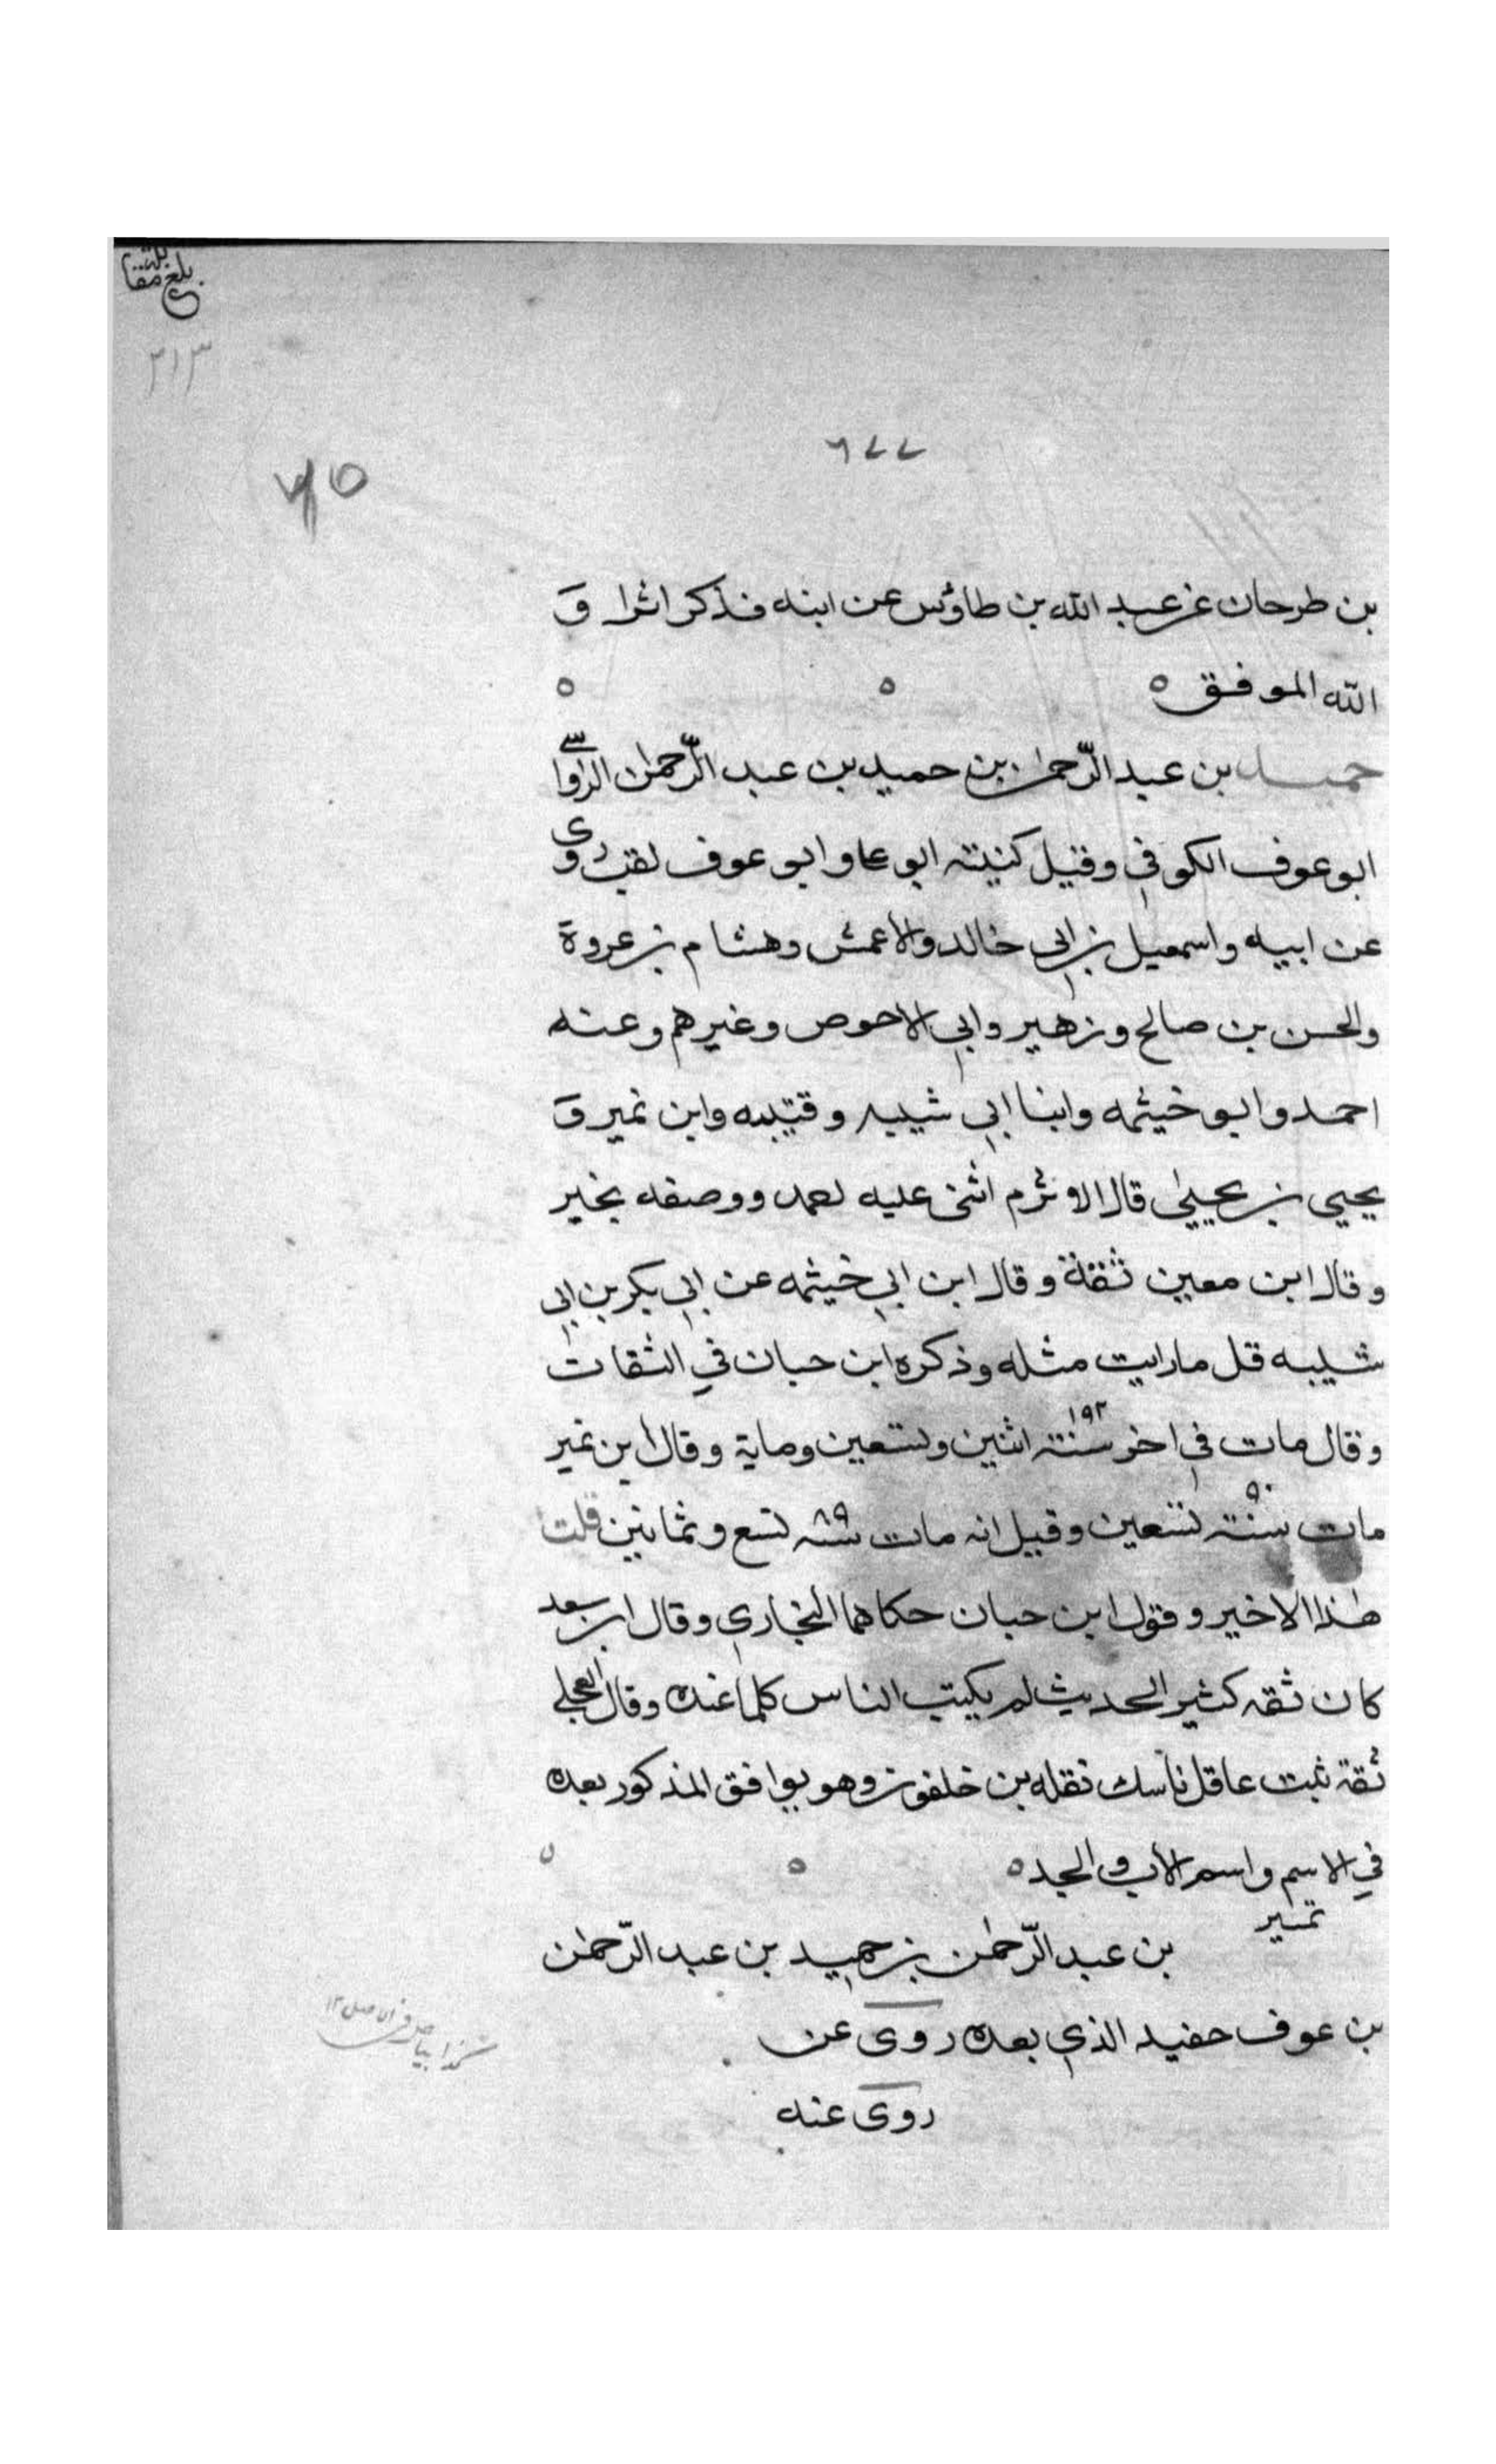 بلغ مقابلة
٢١٣
٦٧٧
٧٥
بن طرحان عن عبد الله بن طاؤس عن ابنه فذكر اثرا و
الله الموفق ه ه ه
حميد بن عبد الرّحمٰن بن حميد بن عبد الرّحمٰن الرواسے
ابو عوف الكوفي وقيل كنيته ابو علي وابو عوف لقب روى
عن ابيه واسمعيل بن ابي خالد والاعمش وهشام بن عروة
والحسن بن صالح وزهير وابي الاحوص وغيرهم وعنه
احمد وابو خيثمه وابنا ابي شيبه وقتيبه وابن نمير و
يحيي بن يحييٰ قال الاوثرم اثنى عليه احمد ووصفه بخير
وقال ابن معين ثقة وقال ابن ابي خيثمه عن ابي بكر بن ابي
شيبه قل ما رايت مثله وذكره ابن حبان في الثقات
وقال مات في اخر سنته ١٩٢ اثنين وتسعين وماية وقال ابن نمير
مات سنته ٩٠ تسعين وقيل انه مات سنه ٨٩ تسع وثمانين قلت
هٰذا الاخير وقول ابن حبان حكاهما البخاري وقال ابن سعد
كان ثقه كثير الحديث لم يكتب الناس كلما عنده وقال العجلے
ثقة ثبت عاقل ناسك نقله بن خلفون وهو يوافق المذكور بعده
في الاسم واسم الاب والجد ه ه ه
تميير بن عبد الرّحمٰن بن حميد بن عبد الرّحمٰن
بن عوف حفيد الذي بعده روى عن
روى عنه
كذا بياض في الاصل ١٢